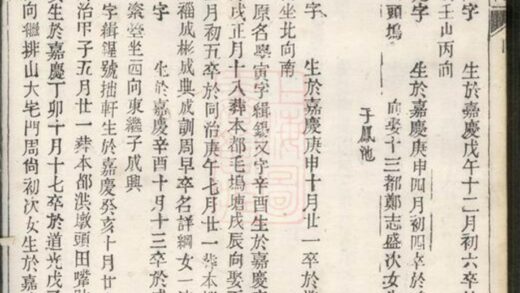 字　生於嘉慶戊午十二月初六卒
坐壬山丙向
字　生於嘉慶庚申四月初四卒於
頭塢　前娶十三都鄭志盛次女生
子鳳池
字　生於嘉慶庚申十月廿一卒於
坐北向南
原名學寅字緝錫又字辛酉生於嘉慶
戌正月十八葬本都毛塢塘戌辰向娶
月初五卒於同治庚午七月廿一葬本
福成彬成典成訓周早卒名詳綱女一
字　生於嘉慶辛酉十月十三卒於
塋坐西向東繼子成興
字緝錕號拙軒生於嘉慶癸亥十月廿
治甲子五月廿一葬本都洪墩頭田
生於嘉慶丁卯十月十七卒於道光戊
向繼排山大宅門周尚初次女生於嘉